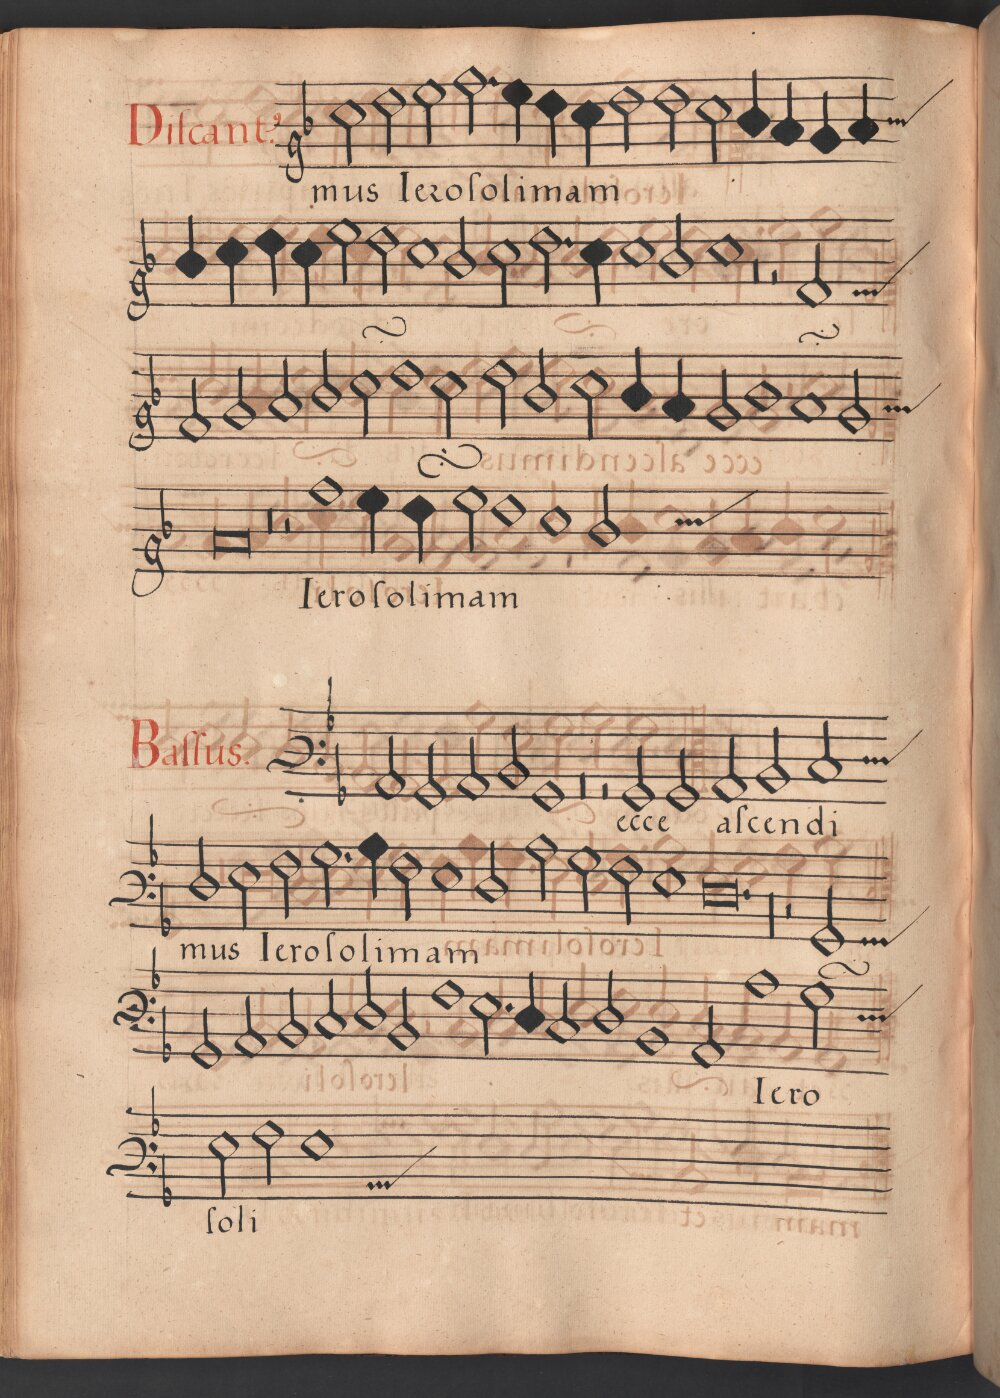 Diſcant⁹
mus Ieroſolimam
Ieroſolimam
Baſſus.
ecce aſcendi
mus Ieroſolimam
Iero
ſoli